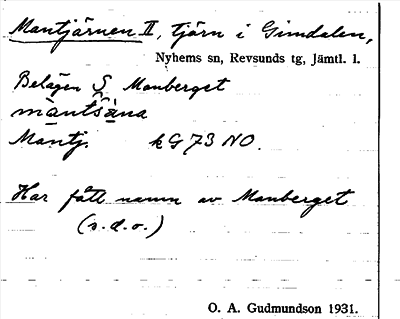 Mantjärnen II, tjärn i Gimdalen,
Nyhems sn, Revsunds tg, Jämtl. l.
Belägen S Manberget
màntšàna
Mantj. kG 73 NO.
Har fått namn av Manberget
(s.d.o.)
O. A. Gudmundson 1931.